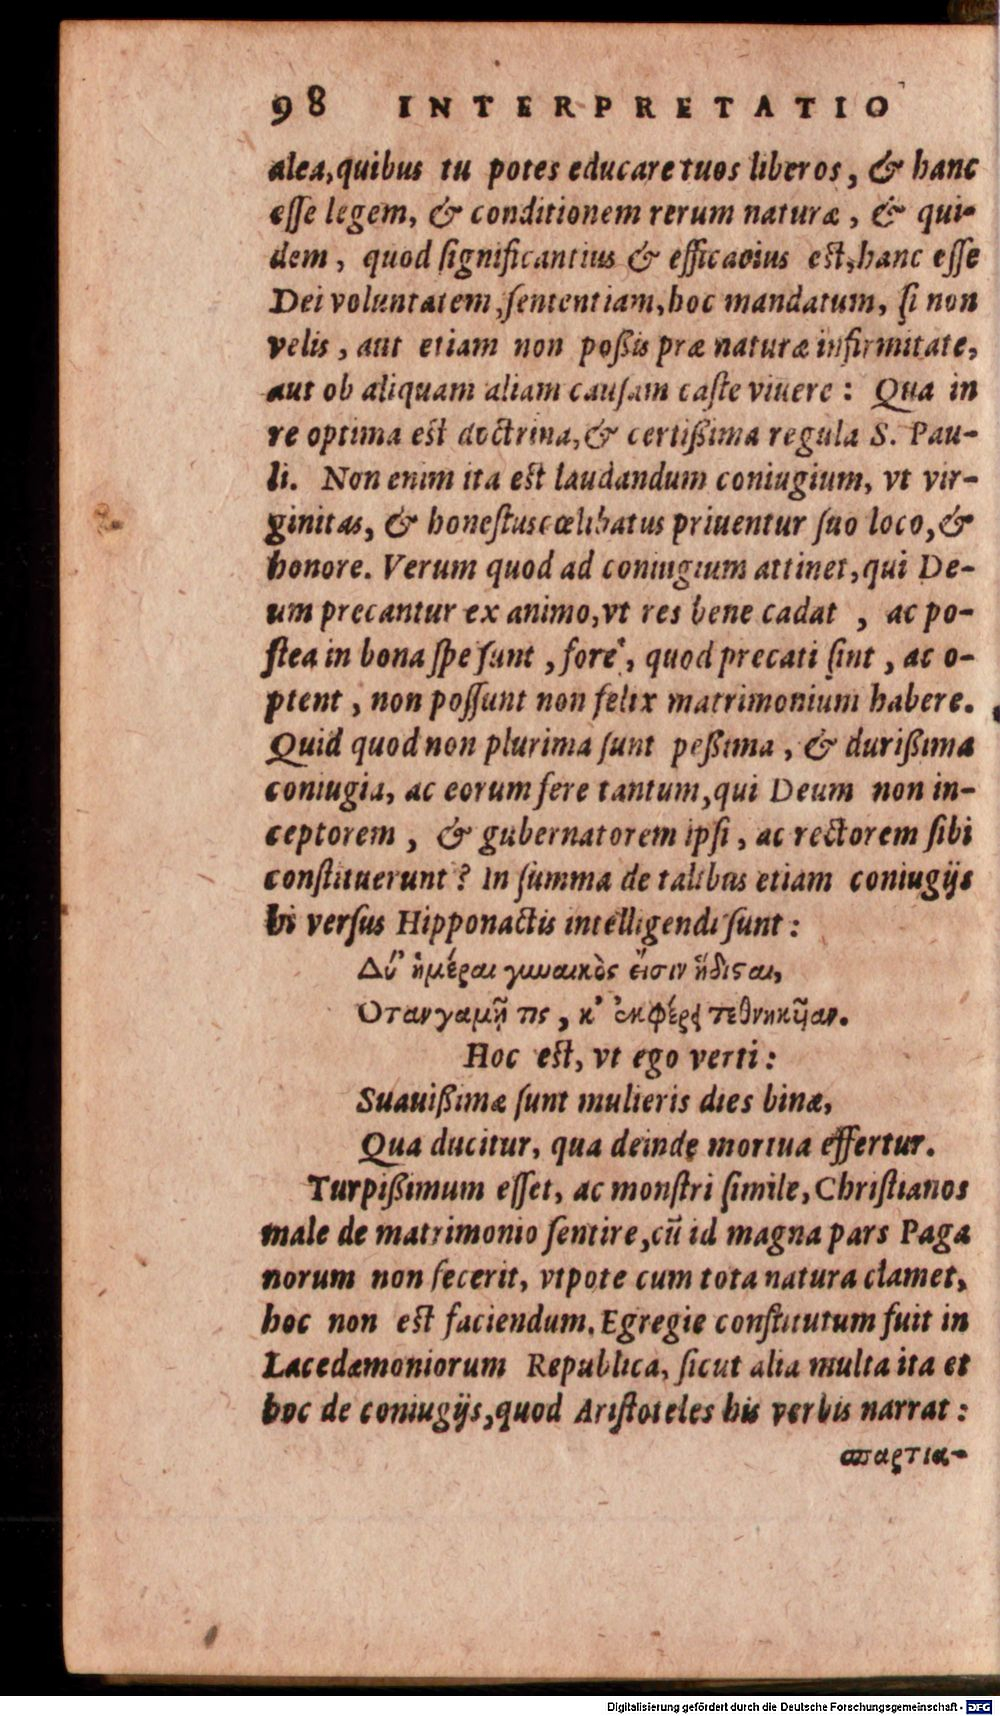 98 INTERPRETATIO
alea, quibus tu potes educare tuos liberos, & hanc
eſſe legem, & conditionem rerum naturæ, & qui-
dem, quod ſignificantius & efficacius eſt, hanc eſſe
Dei voluntatem, ſententiam, hoc mandatum, ſi non
velis, aut etiam non poßis præ naturæ infirmitate,
aut ob aliquam aliam cauſam caſte viuere: Qua in
re optima eſt doctrina, & certißima regula S. Pau-
li. Non enim ita eſt laudandum coniugium, vt vir-
ginitas, & honeſtus cœlibatus priuentur ſuo loco, &
honore. Verum quod ad coniugium attinet, qui De-
um precantur ex animo, vt res bene cadat, ac po-
ſtea in bona ſpe ſunt, fore, quod precati ſint, ac o-
ptent, non poſſunt non felix matrimonium habere.
Quid quod non plurima ſunt peßima, & durißima
coniugia, ac eorum fere tantum, qui Deum non in-
ceptorem, & gubernatorem ipſi, ac rectorem ſibi
conſtituerunt? In ſumma de talibus etiam coniugijs
hi verſus Hipponactis intelligendi ſunt:
Δύ' ἡμέραι γυναικὸς εἴσιν ἥδισται,
Ὅταν γαμῇ τις, κ' ἐκφέρῃ τεθνηκῦαν.
Hoc eſt, vt ego verti:
Suauißimæ ſunt mulieris dies binæ,
Qua ducitur, qua deinde mortua effertur.
Turpißimum eſſet, ac monſtri ſimile, Chriſtianos
male de matrimonio ſentire, cũ id magna pars Paga
norum non fecerit, vtpote cum tota natura clamet,
hoc non eſt faciendum. Egregie conſtitutum fuit in
Lacedæmoniorum Republica, ſicut alia multa ita et
hoc de coniugijs, quod Ariſtoteles his verbis narrat:
σπαρτια-
Digitalisierung gefördert durch die Deutsche Forschungsgemeinschaft - DFG